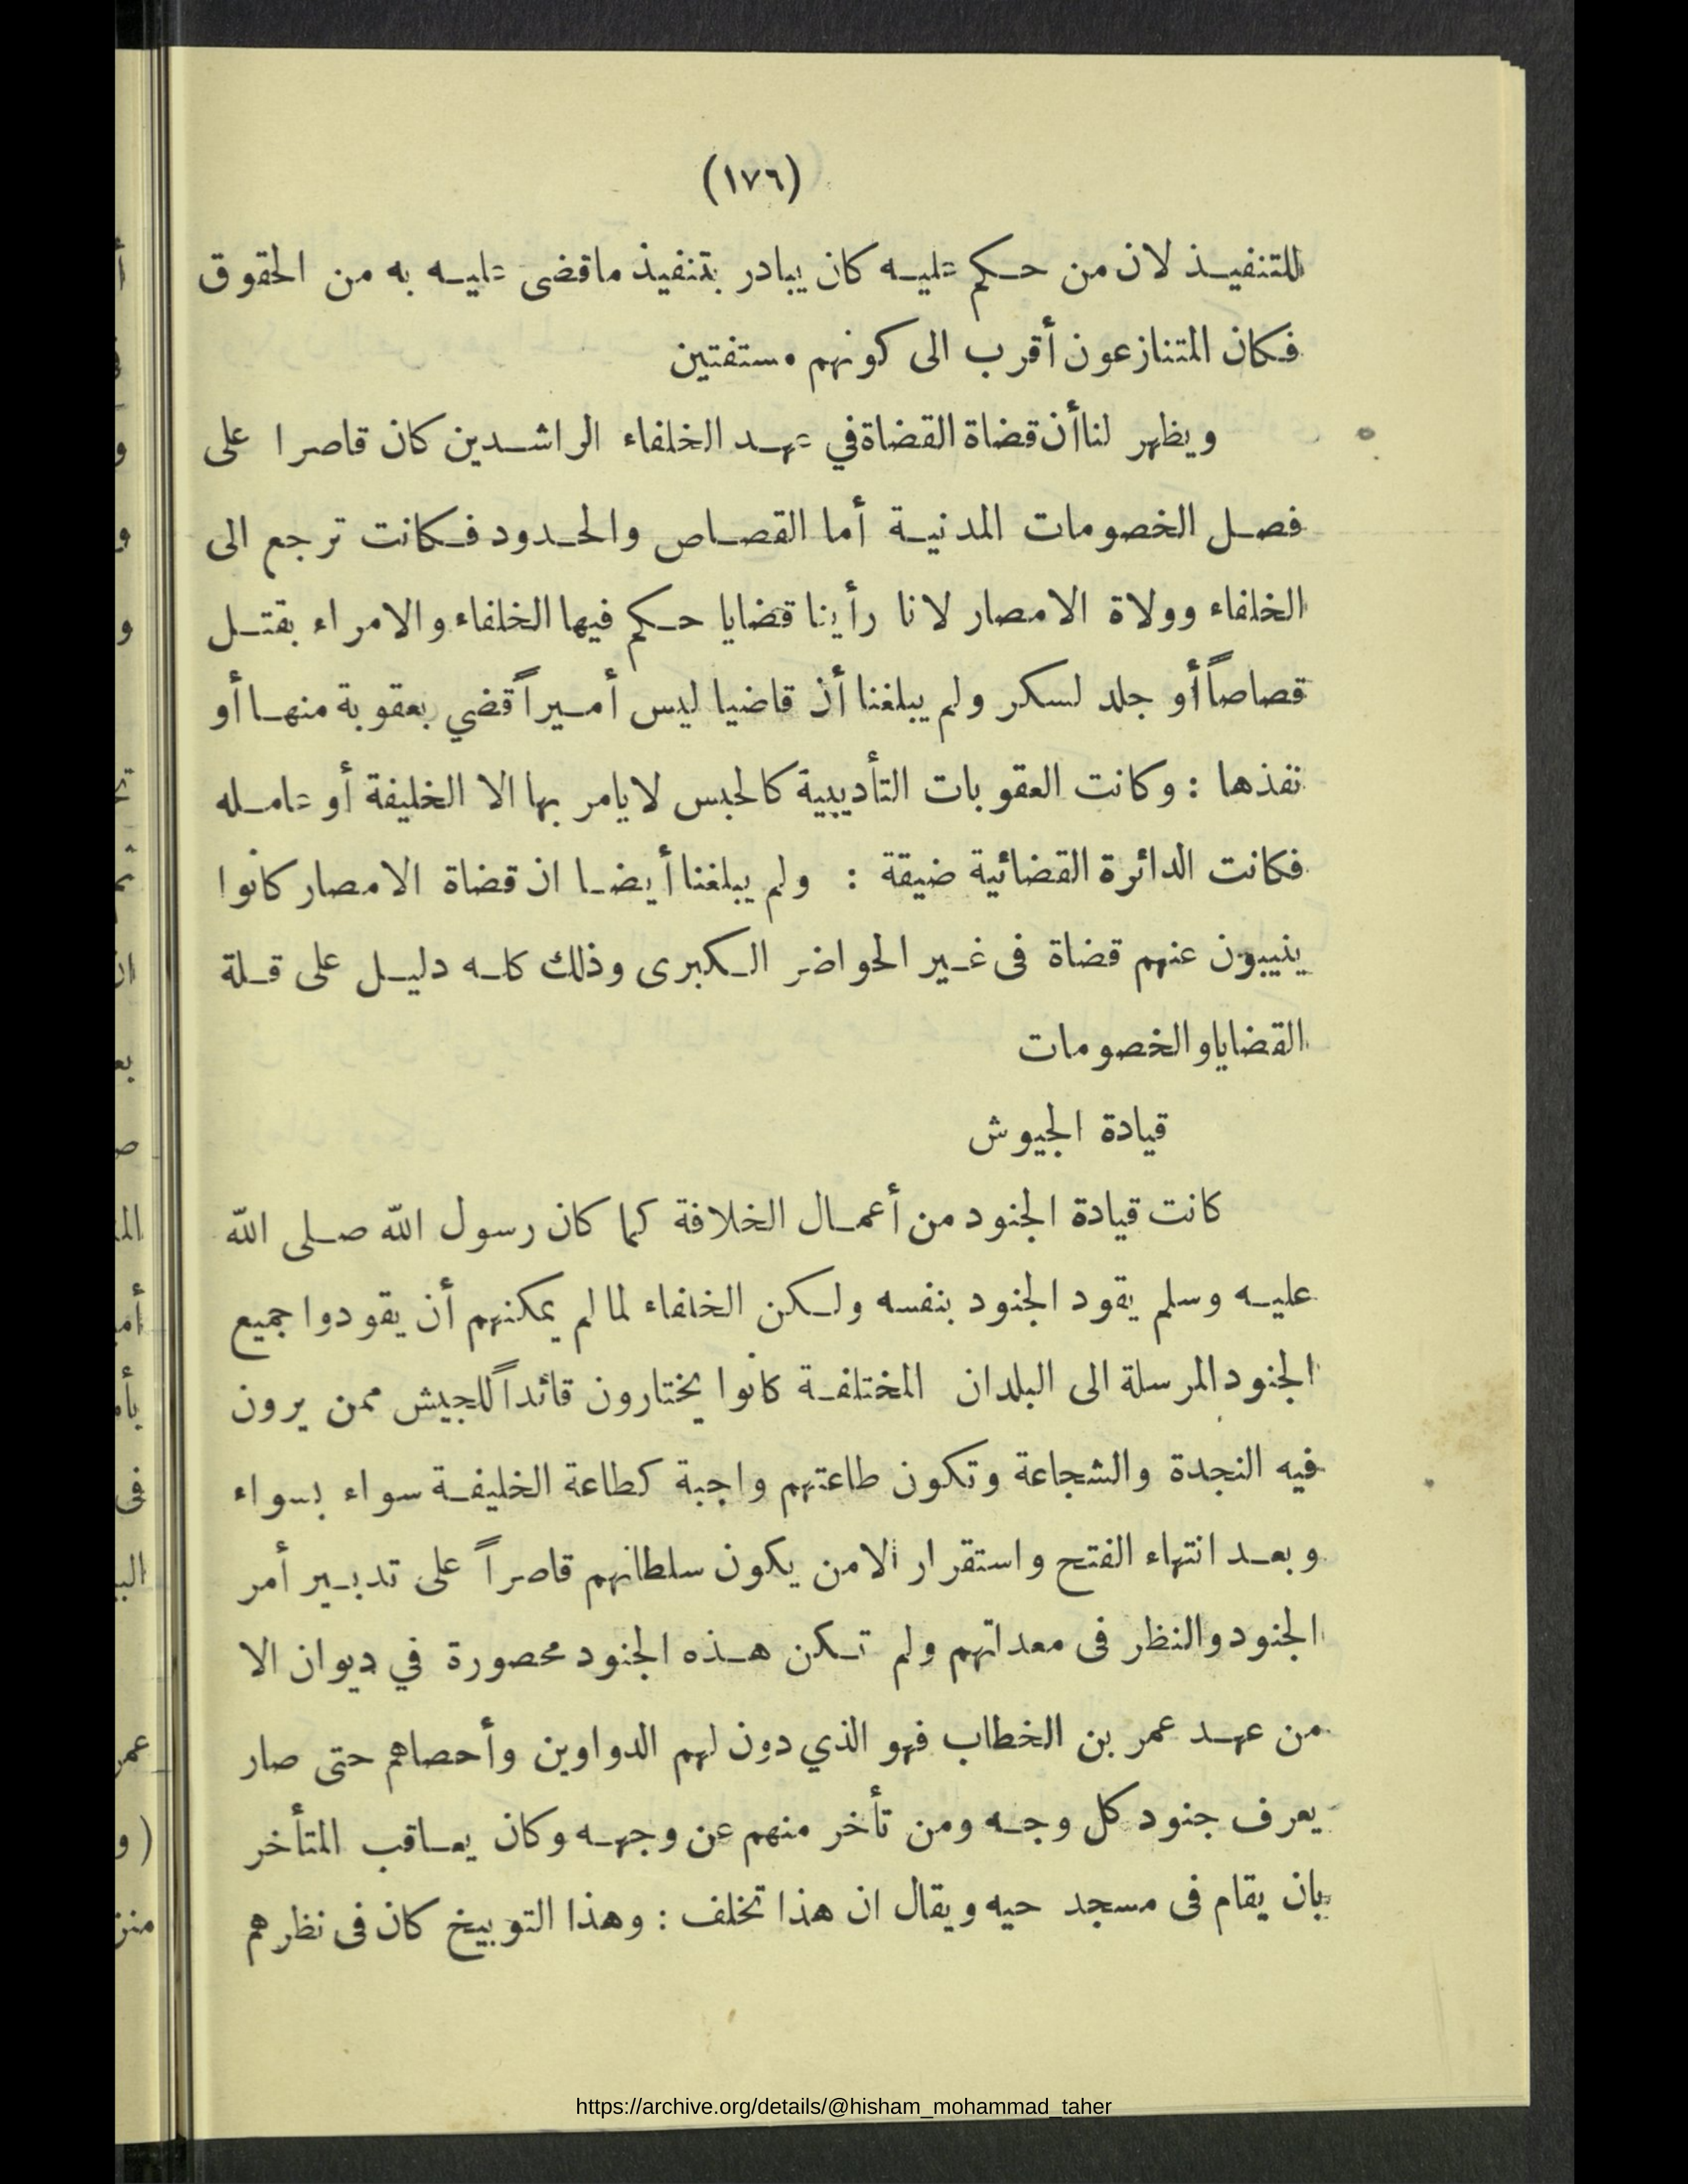 (١٧٦)
للتنفيذ لان من حكم عليه كان يبادر بتنفيذ ماقضى عليه به من الحقوق
فكان المتنازعون أقرب الى كونهم مستفتين
ويظهر لنا أن قضاة القضاة في عهد الخلفاء الراشدين كان قاصرا على
فصل الخصومات المدنية أما القصاص والحدود فكانت ترجع الى
الخلفاء وولاة الامصار لانا رأينا قضايا حكم فيها الخلفاء والامراء بقتل
قصاصاً أو جلد لسكر ولم يبلغنا أن قاضيا ليس أميراً قضي بعقوبة منها أو
نفذها : وكانت العقوبات التأديبية كالحبس لا يامر بها الا الخليفة أو عامله
فكانت الدائرة القضائية ضيقة : ولم يبلغنا أيضا ان قضاة الامصار كانوا
ينيبون عنهم قضاة فى غير الحواضر الكبرى وذلك كله دليل على قلة
القضايا والخصومات
قيادة الجيوش
كانت قيادة الجنود من أعمال الخلافة كما كان رسول الله صلى الله
عليه وسلم يقود الجنود بنفسه ولكن الخلفاء لما لم يمكنهم أن يقودوا جميع
الجنود المرسلة الى البلدان المختلفة كانوا يختارون قائداً للجيش ممن يرون
فيه النجدة والشجاعة وتكون طاعتهم واجبة كطاعة الخليفة سواء بسواء
وبعد انتهاء الفتح واستقرار الامن يكون سلطانهم قاصراً على تدبير أمر
الجنود والنظر فى معداتهم ولم تكن هذه الجنود محصورة في ديوان الا
من عهد عمر بن الخطاب فهو الذي دون لهم الدواوين وأحصاهم حتى صار
يعرف جنود كل وجه ومن تأخر منهم عن وجهه وكان يعاقب المتأخر
بان يقام فى مسجد حيه ويقال ان هذا تخلف : وهذا التوبيخ كان فى نظرهم
https://archive.org/details/@hisham_mohammad_taher